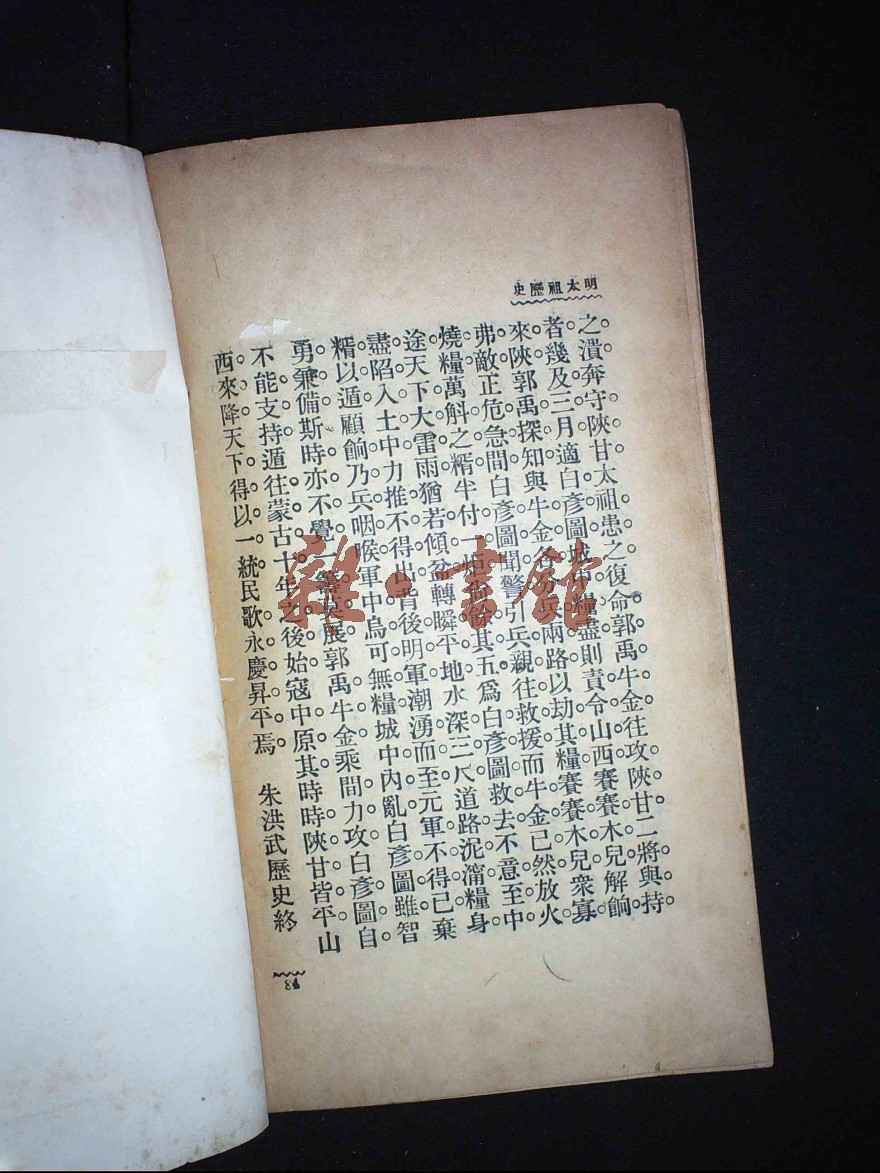 明太祖歷史
之潰奔守陝甘太祖患之復命郭禹牛金往攻陝甘二將與持
者幾及三月適白彥圖城中糧盡則責令山西賽賽木兒解餉
來陝郭禹探知與牛金各分兵兩路以劫其糧賽賽木兒衆寡
弗敵正危急間白彥圖聞警引兵親往救援而牛金已然放火
燒糧萬斛之糈半付一炬尚餘其五爲白彥圖救去不意至中
途天下大雷雨猶若傾盆轉瞬平地水深三尺道路泥濘糧身
盡陷入土中力推不得出背後明軍潮湧而至元軍不得已棄
糈以遁顧餉乃兵咽喉軍中烏可無糧城中內亂白彥圖雖智
勇兼備斯時亦不覺一籌莫展郭禹牛金乘間力攻白彥圖自
不能支持遁往蒙古十年之後始寇中原其時時陝甘皆平山
西來降天下得以一統民歌永慶昇平焉 朱洪武歷史終
84
雜·書館